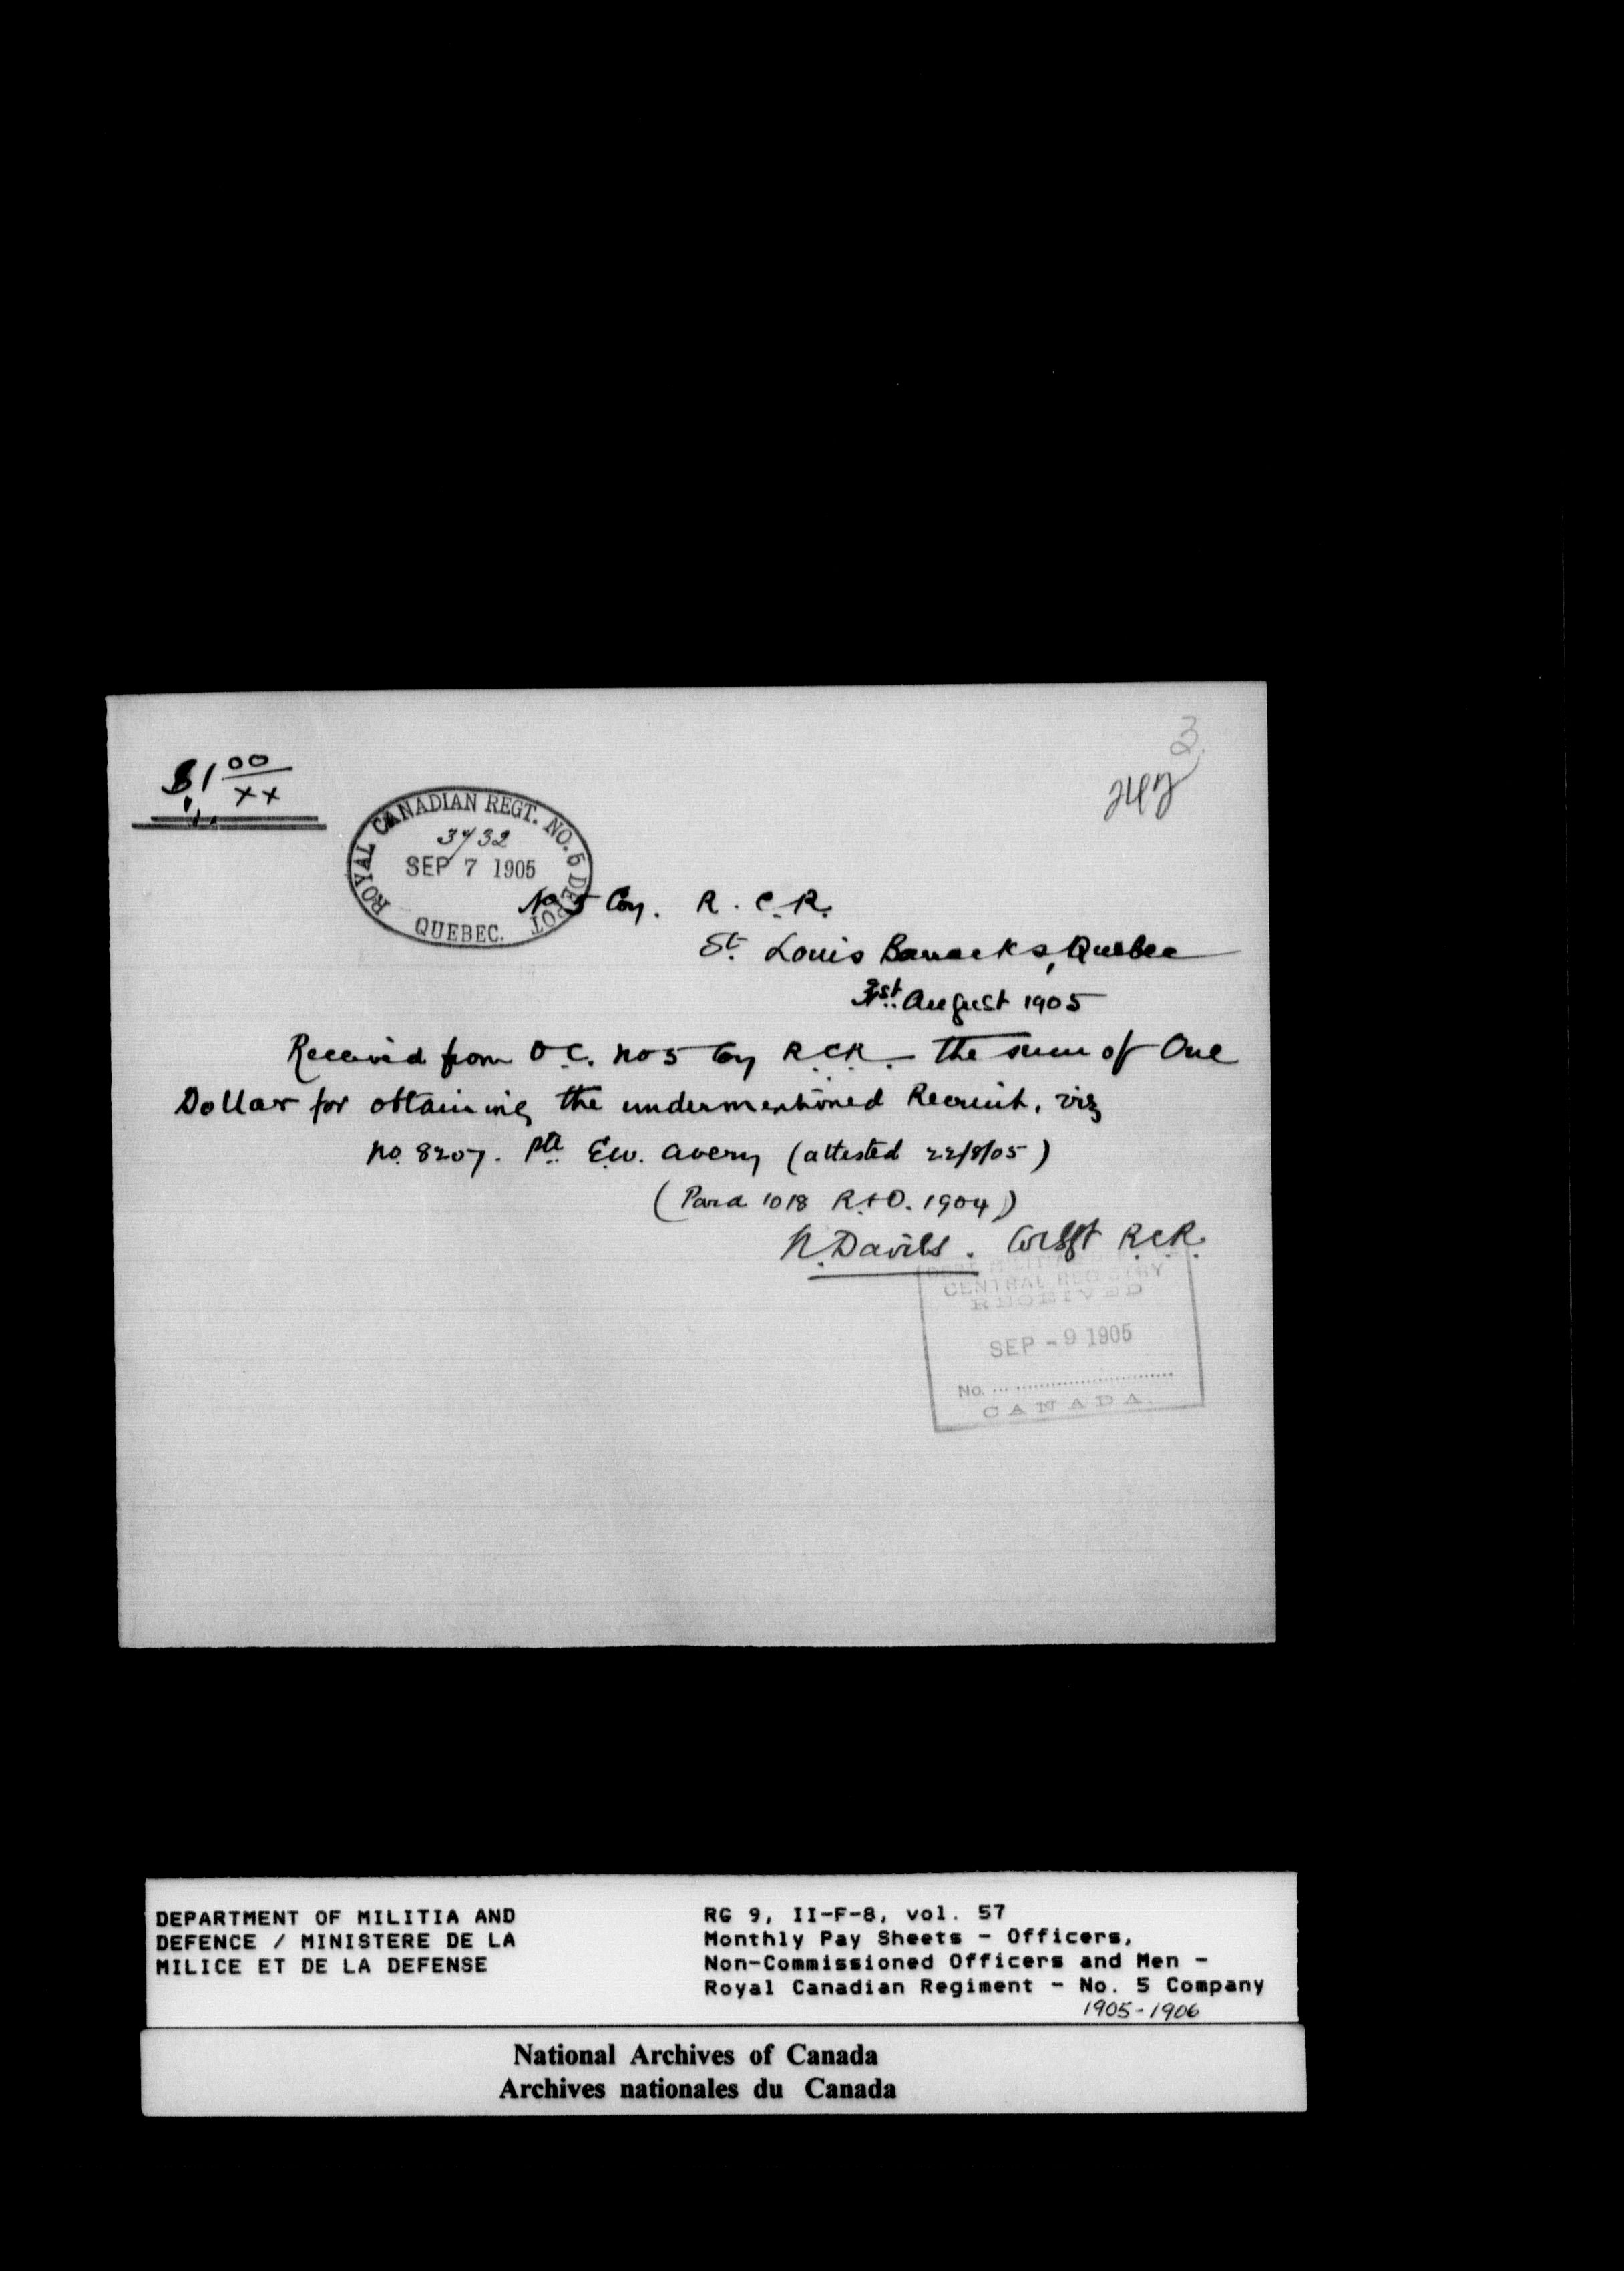 3
$1 00/xx
ROYAL CANADIAN REGT. NO. 5 DEPOT
3/32
SEP 7 1905
QUEBEC.
No 5 Coy. R. C. R.
St. Louis Barracks, Quebec
31st August 1905
Received from O.C. No 5 Coy R.C.R. the sum of One
Dollar for obtaining the undermentioned Recruit, viz
No. 8207. Pte E.W. Avery (attested 22/8/05)
(Para 1018 R.&O. 1904)
N. Davies. Col Sgt R.C.R.
CENTRAL REGISTRY
RECEIVED
SEP - 9 1905
No.
CANADA.
DEPARTMENT OF MILITIA AND
DEFENCE / MINISTERE DE LA
MILICE ET DE LA DEFENSE
RG 9, II-F-8, vol. 57
Monthly Pay Sheets - Officers,
Non-Commissioned Officers and Men -
Royal Canadian Regiment - No. 5 Company
1905-1906
National Archives of Canada
Archives nationales du Canada